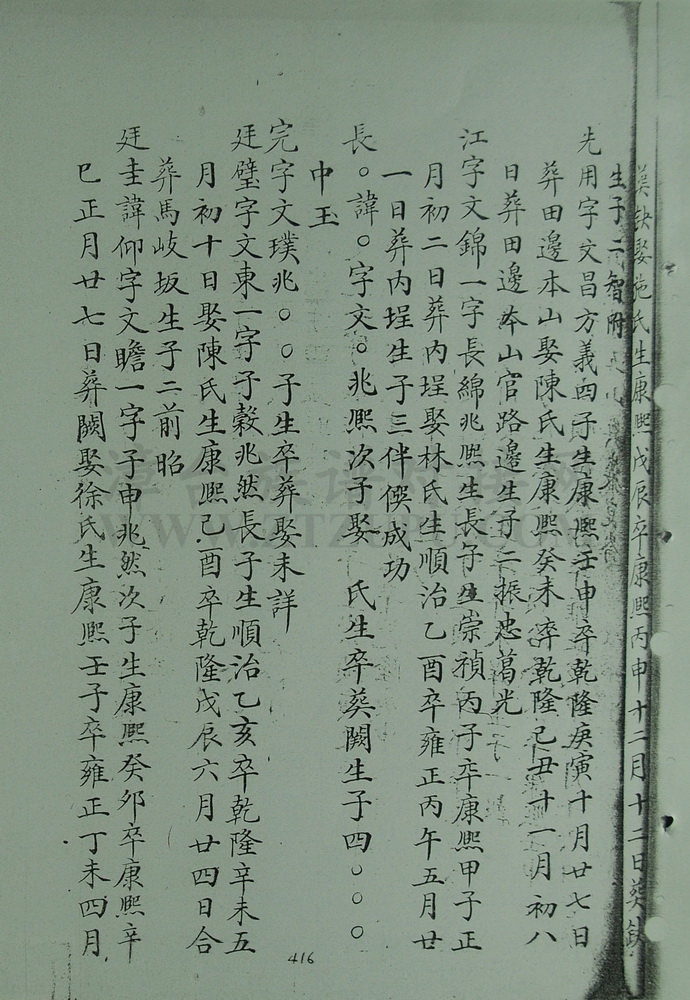 葬缺娶施氏生康熙戊辰卒康熙丙申十二月十二日葬缺
生子二智附
先用字文昌方義四子生康熙壬申卒乾隆庚寅十月廿七日
葬田邊本山娶陳氏生康熙癸未卒乾隆己丑十一月初八
日葬田邊本山官路邊生子二振忠葛光
江字文錦一字長綿兆熙生長子生崇禎丙子卒康熙甲子正
月初二日葬内埕娶林氏生順治乙酉卒雍正丙午五月廿
一日葬内埕生子三伴僎成功
長○諱○字文○兆熙次子娶 氏生卒葵闕生子四○○○
中玉
完字文璞兆○○子生卒葬娶未詳
廷璧字文東一字子穀兆然長子生順治乙亥卒乾隆辛未五
月初十日娶陳氏生康熙己酉卒乾隆戊辰六月廿四日合
葬馬岐坂生子二前昭
廷圭諱仰字文瞻一字子申兆然次子生康熙癸夘卒康熙辛
巳正月廿七日葬闕娶徐氏生康熙壬子卒雍正丁未四月
416